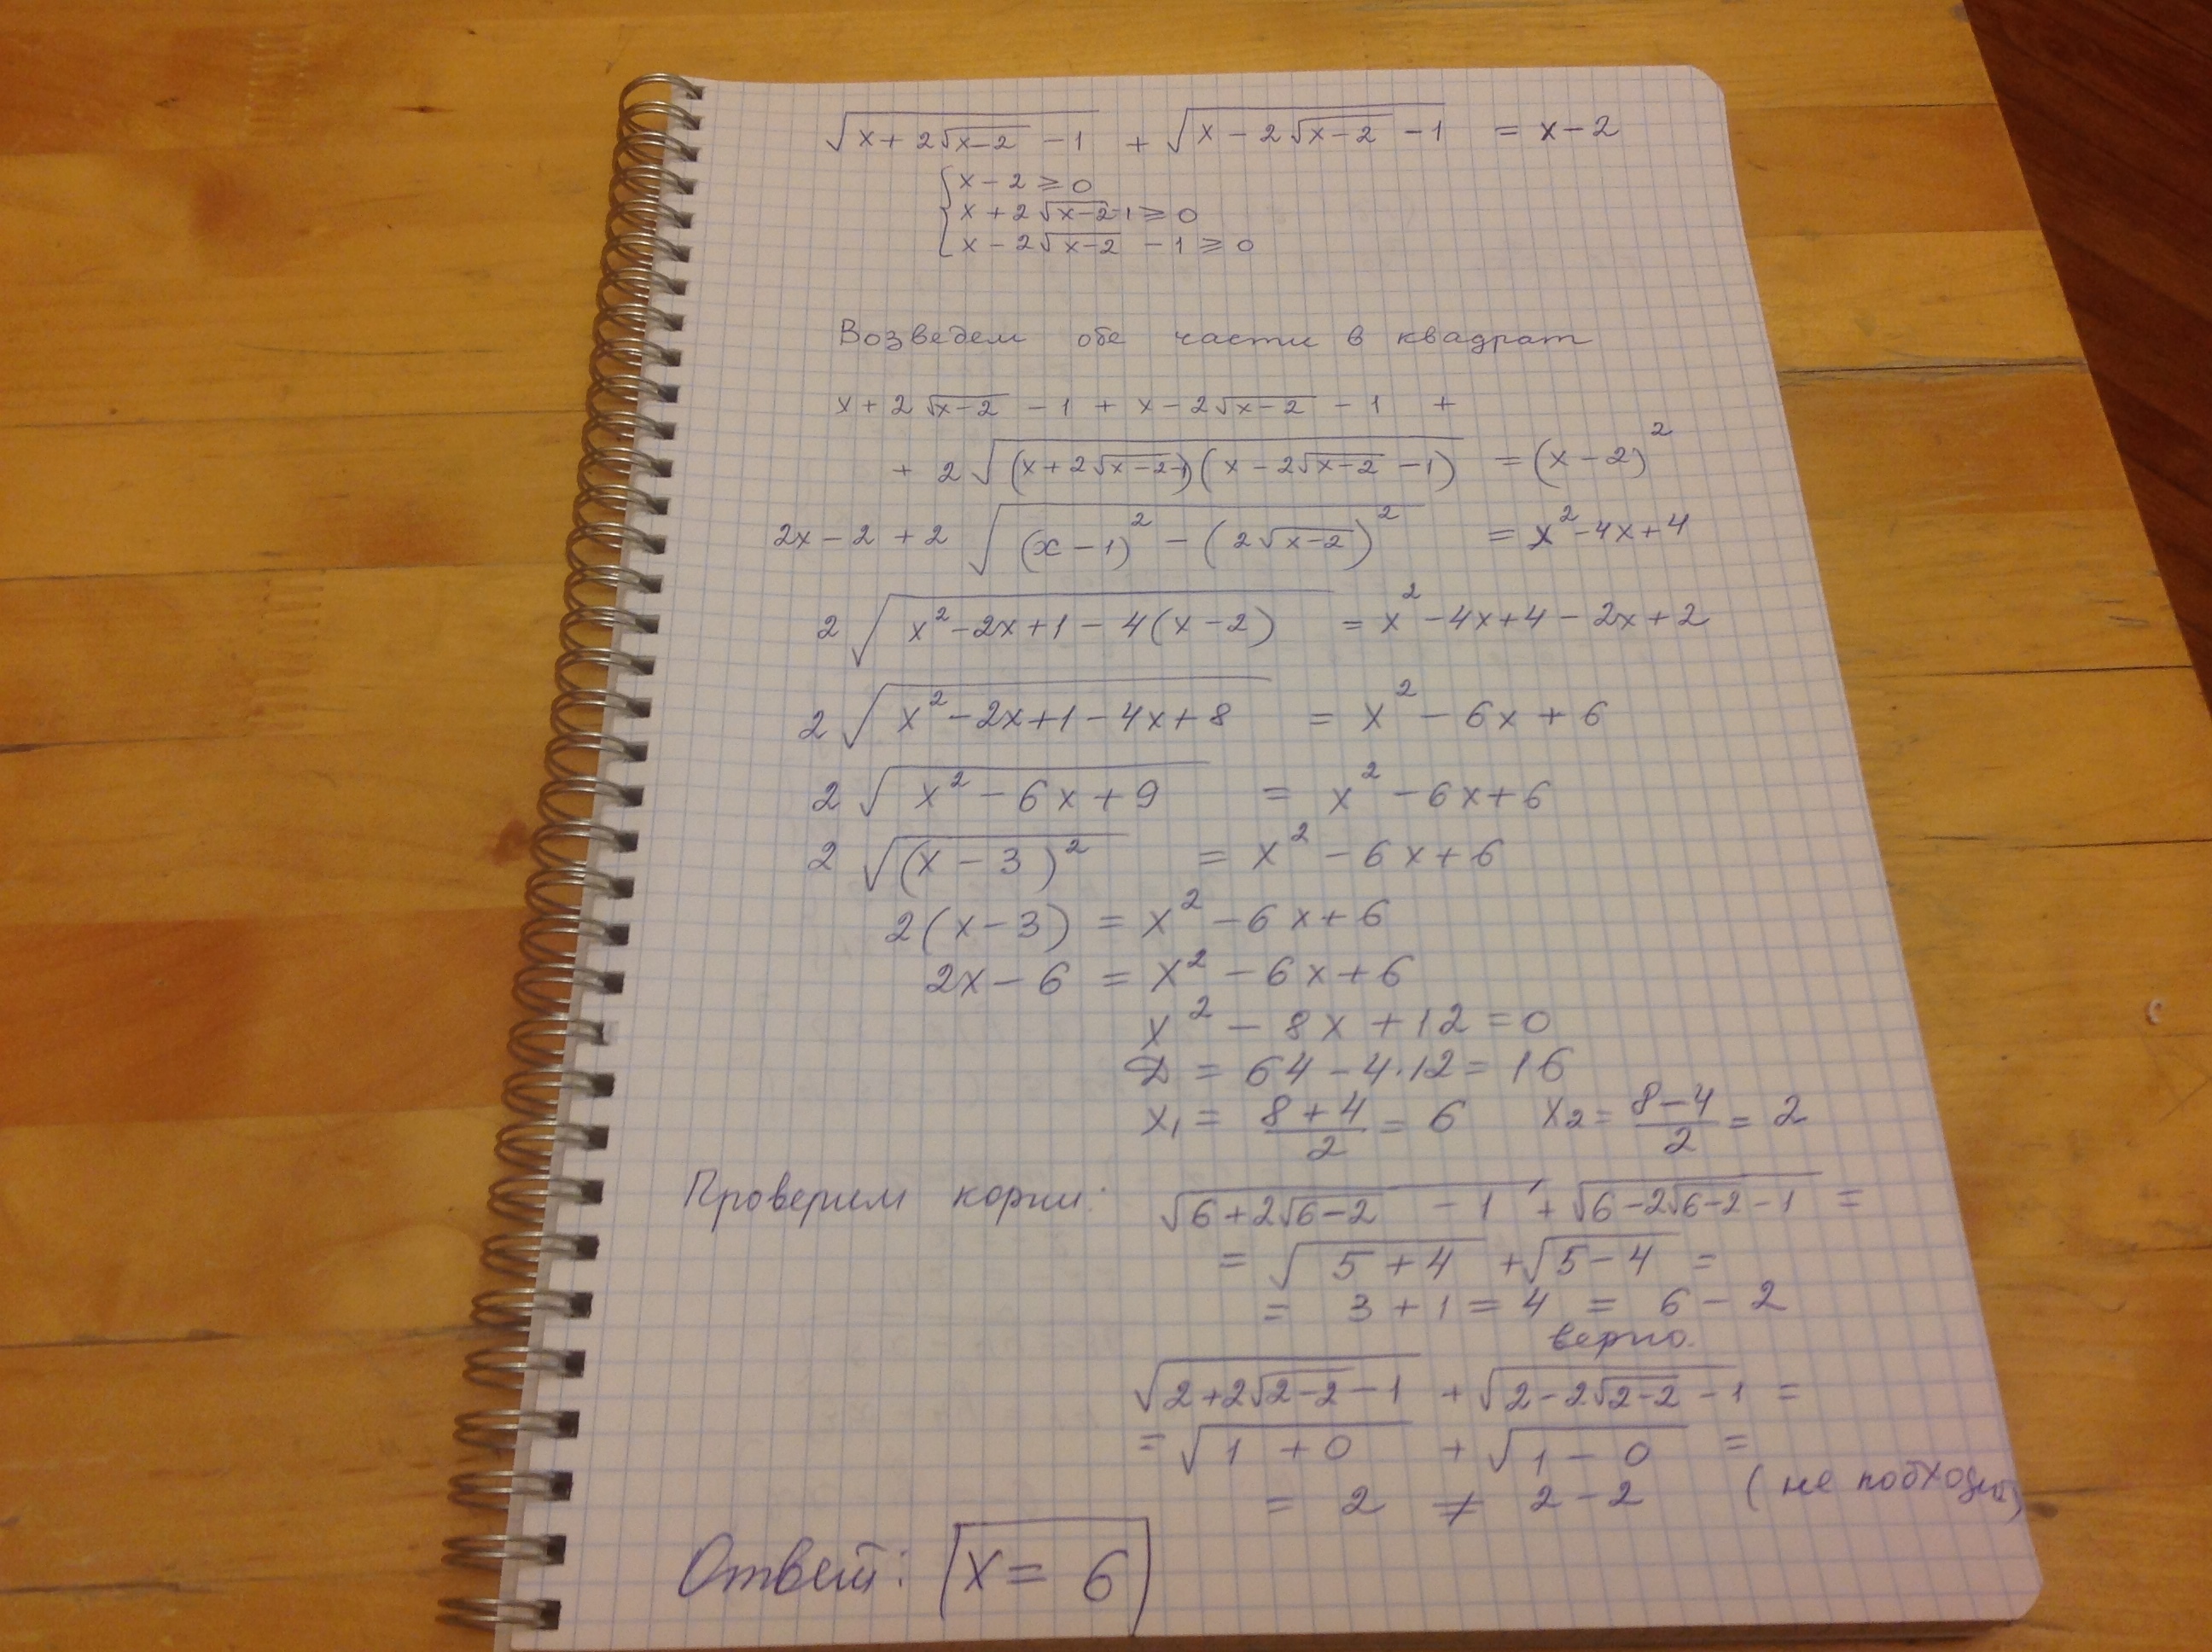 √(x + 2√(x-2) - 1) + √(x - 2√(x-2) - 1) = x - 2
{ x - 2 ≥ 0
x + 2√(x-2) - 1 ≥ 0
x - 2√(x-2) - 1 ≥ 0
Возведем обе части в квадрат
x + 2√(x-2) - 1 + x - 2√(x-2) - 1 +
+ 2√((x + 2√(x-2) - 1)(x - 2√(x-2) - 1)) = (x - 2)²
2x - 2 + 2√((x - 1)² - (2√(x-2))²) = x² - 4x + 4
2√(x² - 2x + 1 - 4(x - 2)) = x² - 4x + 4 - 2x + 2
2√(x² - 2x + 1 - 4x + 8) = x² - 6x + 6
2√(x² - 6x + 9) = x² - 6x + 6
2√((x - 3)²) = x² - 6x + 6
2(x - 3) = x² - 6x + 6
2x - 6 = x² - 6x + 6
x² - 8x + 12 = 0
D = 64 - 4·12 = 16
x₁ = (8 + 4)/2 = 6 x₂ = (8 - 4)/2 = 2
Проверим корни: √(6 + 2√(6-2) - 1) + √(6 - 2√(6-2) - 1) =
= √(5 + 4) + √(5 - 4) =
= 3 + 1 = 4 = 6 - 2
верно.
√(2 + 2√(2-2) - 1) + √(2 - 2√(2-2) - 1) =
= √(1 + 0) + √(1 - 0) =
= 2 ≠ 2 - 2 (не подходит)
Ответ: x = 6